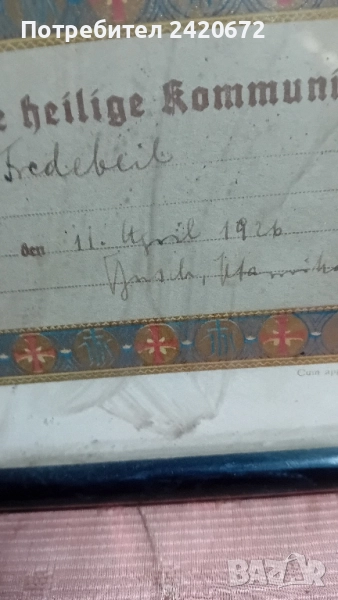 Потребител 2420672
e heilige Kommuni
Fredebeil
den 11. April 1926
Busch,
Cum ap
BAZAR